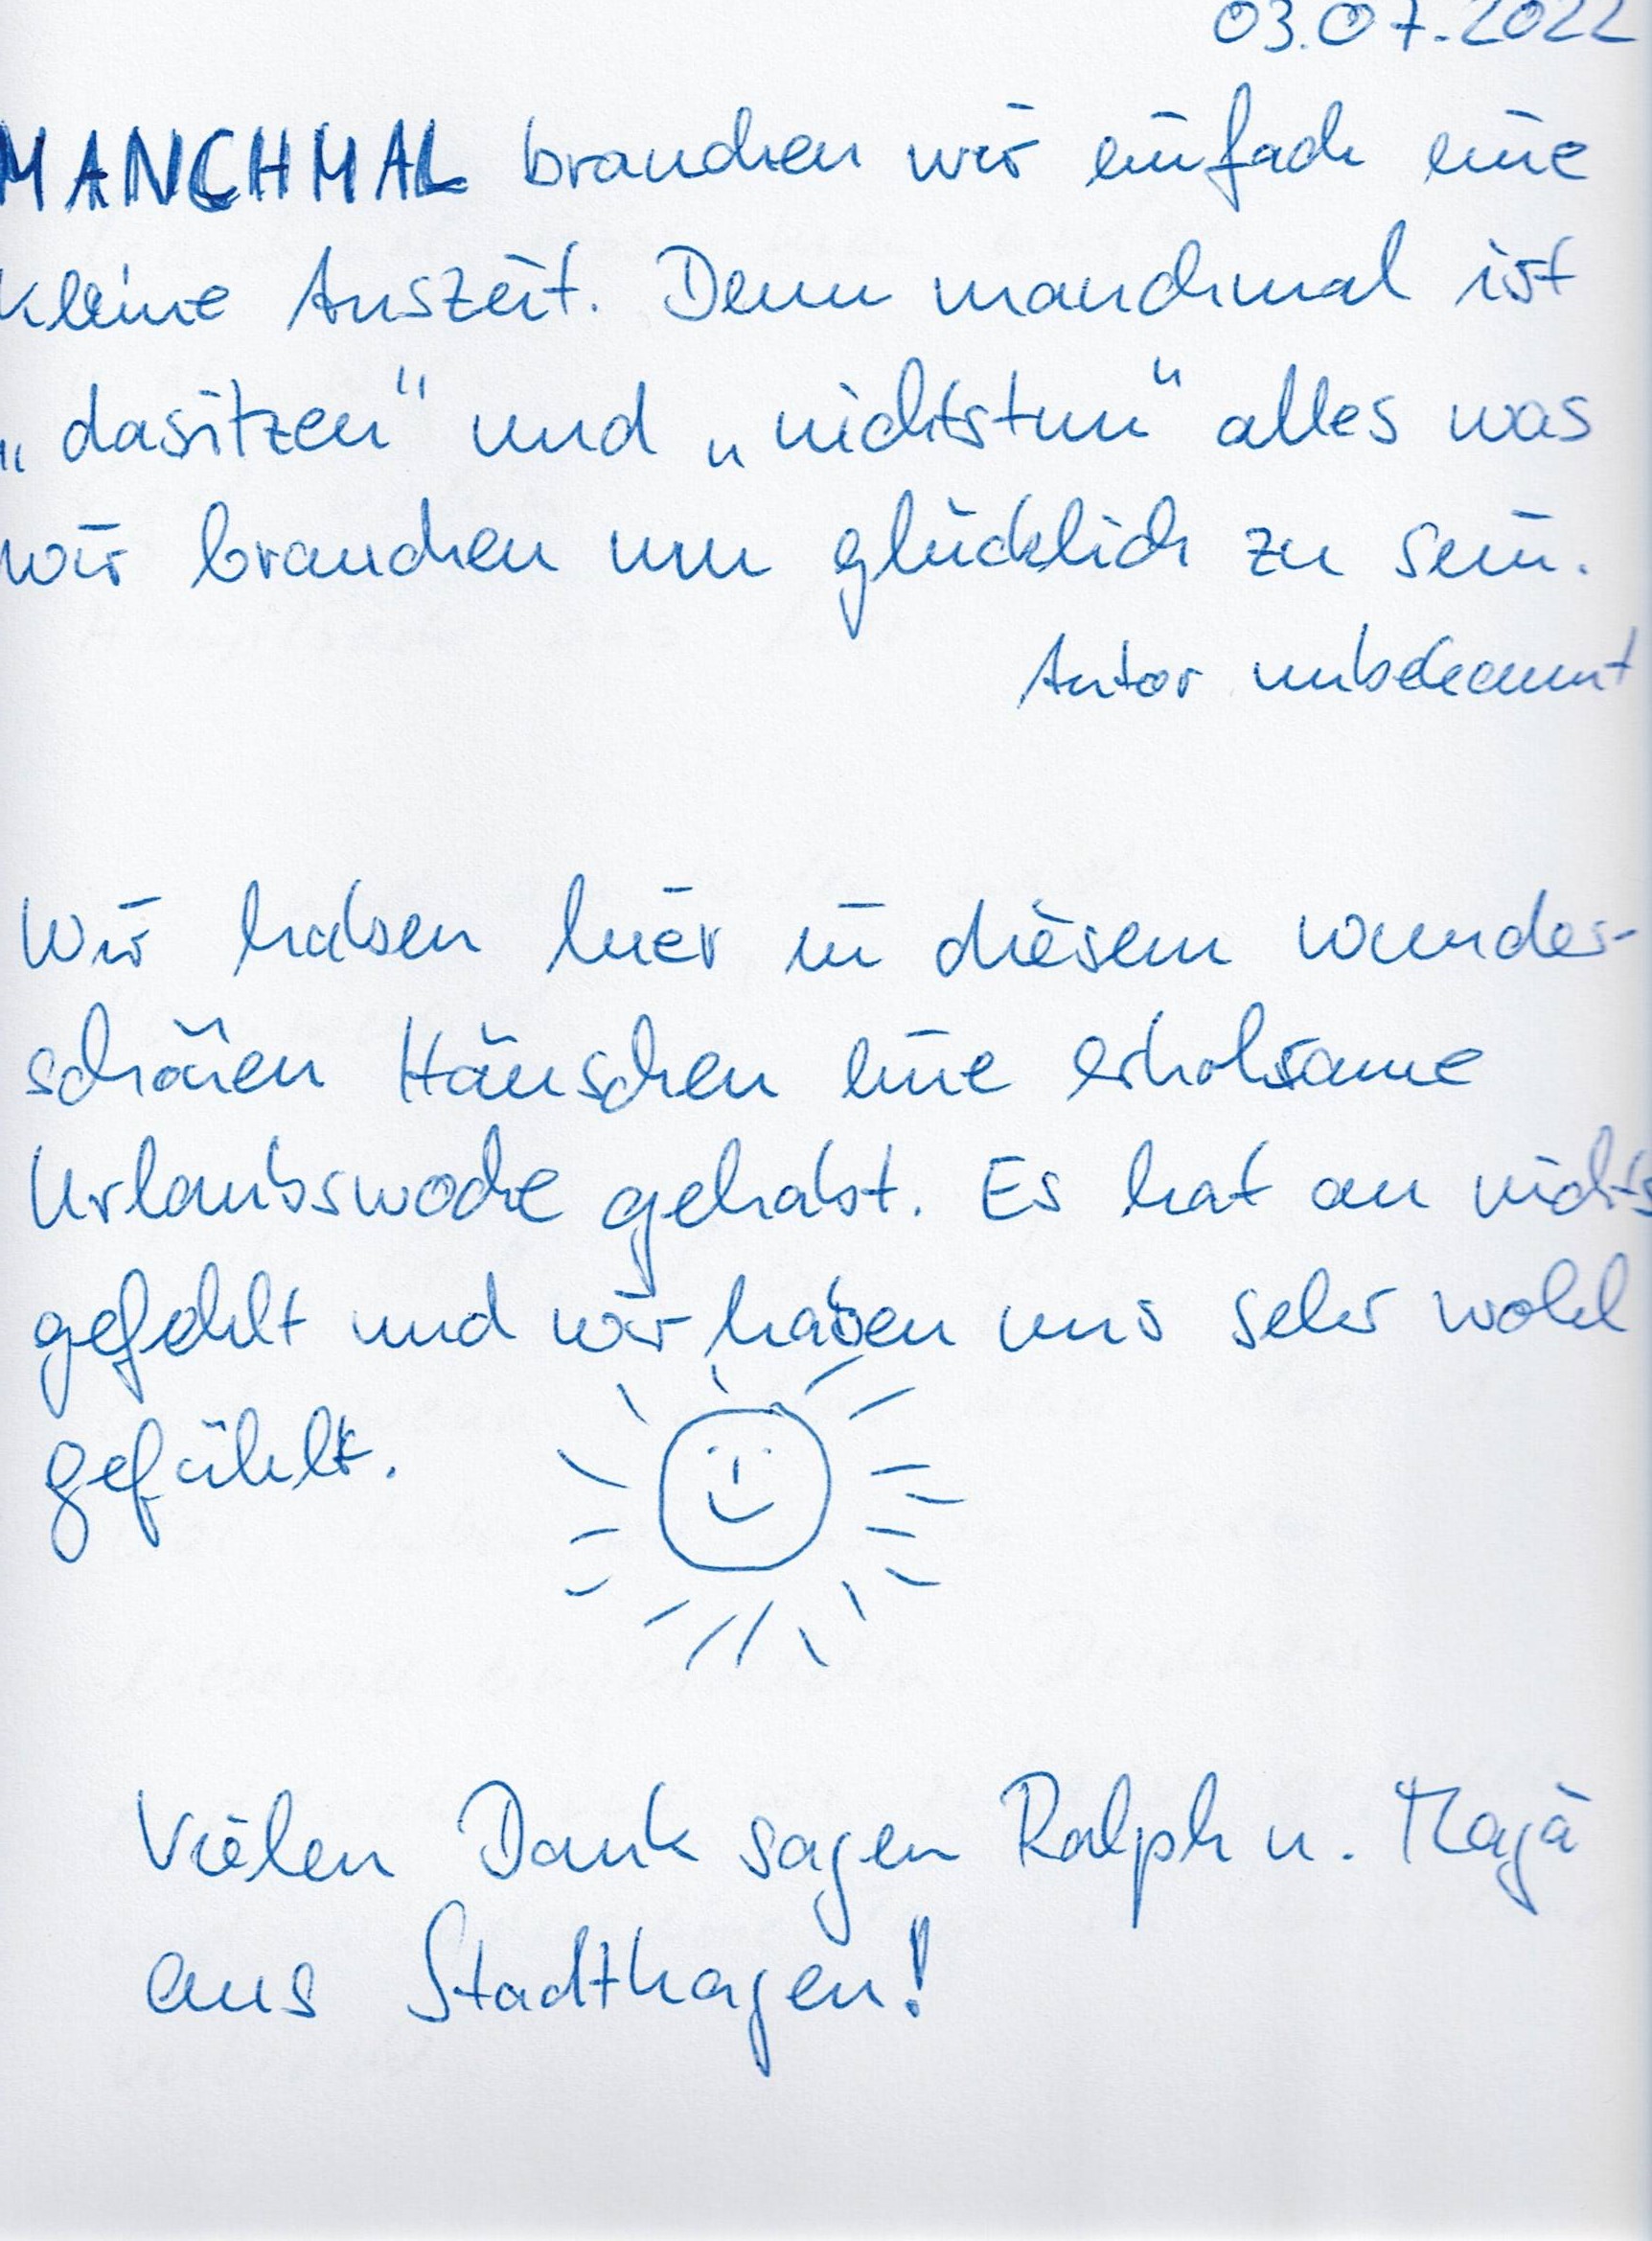 03.07.2022
MANCHMAL brauchen wir einfach eine
kleine Auszeit. Denn manchmal ist
„dasitzen“ und „nichtstun“ alles was
wir brauchen um glücklich zu sein.
Autor unbekannt
Wir haben hier in diesem wunder-
schönen Häuschen eine erholsame
Urlaubswoche gehabt. Es hat an nichts
gefehlt und wir haben uns sehr wohl
gefühlt.
Vielen Dank sagen Ralph u. Maja
aus Stadthagen!